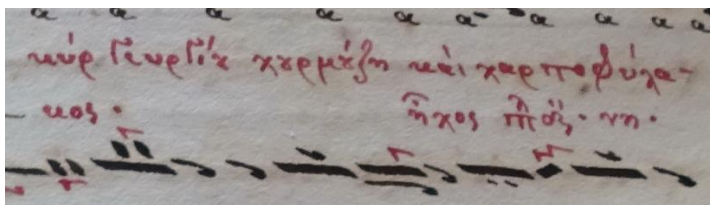 α α α α α α α α α α
κύρ Γεωργίȣ χȣρμȣ́ζη καὶ χαρτοφύλα-
κος. ἦχος πλ δ̈. νη.